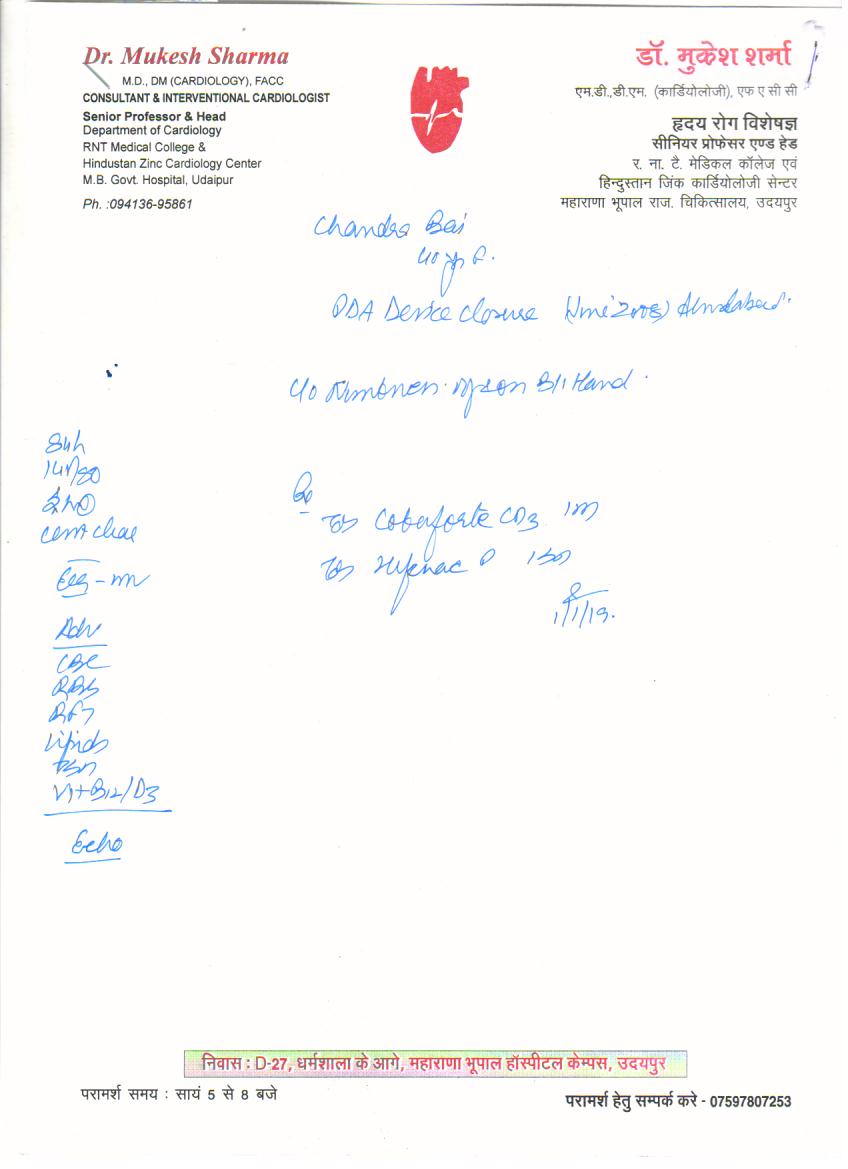 Dr. Mukesh Sharma
M.D., DM (CARDIOLOGY), FACC
CONSULTANT & INTERVENTIONAL CARDIOLOGIST
Senior Professor & Head
Department of Cardiology
RNT Medical College &
Hindustan Zinc Cardiology Center
M.B. Govt. Hospital, Udaipur
Ph. :094136-95861
डॉ. मुकेश शर्मा
एम.डी.,डी.एम. (कार्डियोलोजी), एफ ए सी सी
हृदय रोग विशेषज्ञ
सीनियर प्रोफेसर एण्ड हेड
र. ना. टै. मेडिकल कॉलेज एवं
हिन्दुस्तान जिंक कार्डियोलोजी सेन्टर
महाराणा भूपाल राज. चिकित्सालय, उदयपुर
Chandra Bai
40 yr F.
PDA Device closure Ahmdabad.
C/o Hand.
ECG -
Adv
CBC
RBS
RFT
Lipids
TSH
Vit B12/D3
Echo
Tab CD3
Tab P
1/1/19.
निवास : D-27, धर्मशाला के आगे, महाराणा भूपाल हॉस्पीटल केम्पस, उदयपुर
परामर्श समय : सायं 5 से 8 बजे
परामर्श हेतु सम्पर्क करे - 07597807253